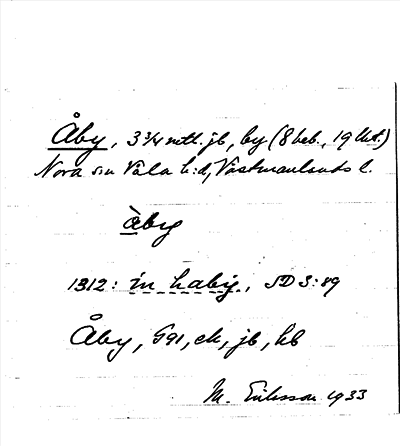 Åby, 3 3/4 mtl. jb, by (8 beb., 19 lht.)
Nora sn Våla h:d, Västmanlands l.
àby
1312: in haby, SD 3:89
Åby, G91, ek, jb, kb
M. Eriksson 1933